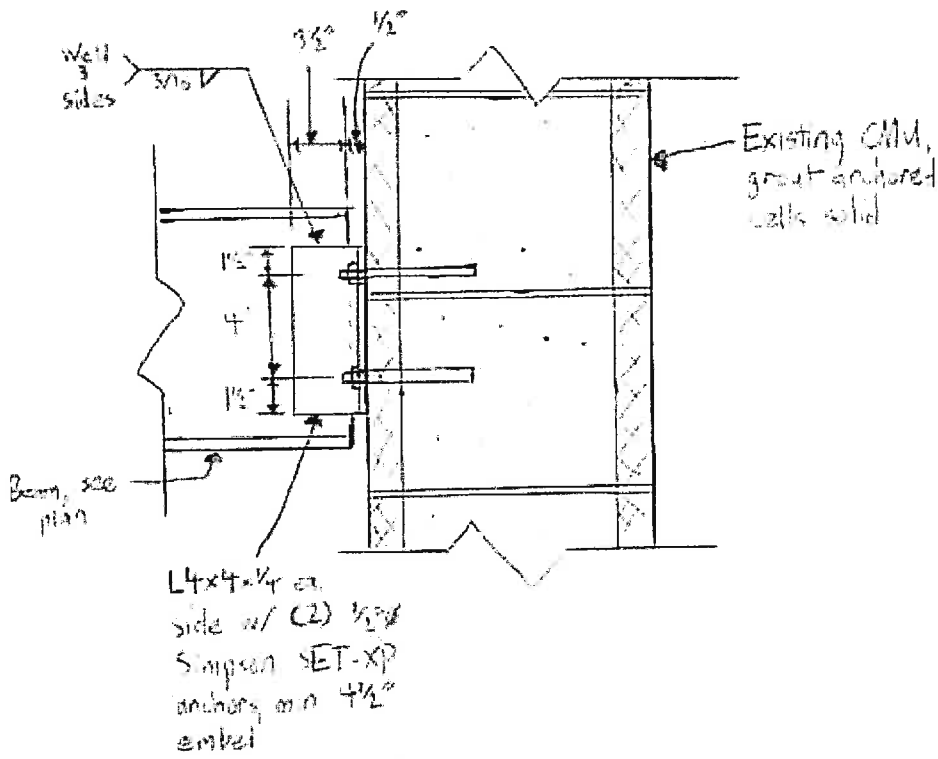 3½"
½"
Weld
3
sides
3/16
Existing CMU,
grout anchored
cells solid
1½"
4"
1½"
Beam, see
plan
L4x4x¼ ea.
side w/ (2) ½"ø
Simpson SET-XP
anchors, min 4½"
embed